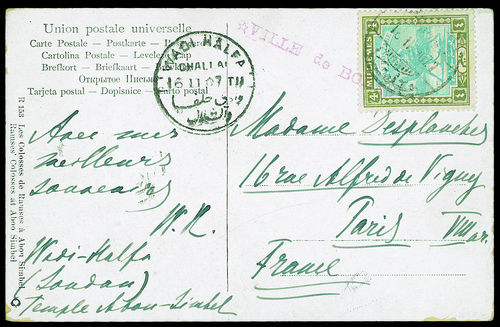 Union postale universelle
Carte Postale — Postkarte —
Cartolina Postale — Levelező-Lap
Brefkort — Briefkaart —
Открытое Письмо
Tarjeta postal — Dopisnice — Carto postal
WADI HALFA
SHALLAL
16 II 07 TII
وادي حلفا
والشلال
☆VILLE de BO
4 MILLIEMES 4
R 153 Les Colosses de Ramsès à Abou Simbel
Ramses' Colosses at Aboo Simbel
Avec mes
meilleurs
souvenirs
W. K.
Wadi-Halfa
(Soudan)
Temple Abou-Simbel
Madame Desplanches
16 rue Alfred de Vigny
Paris VIII ar.
France